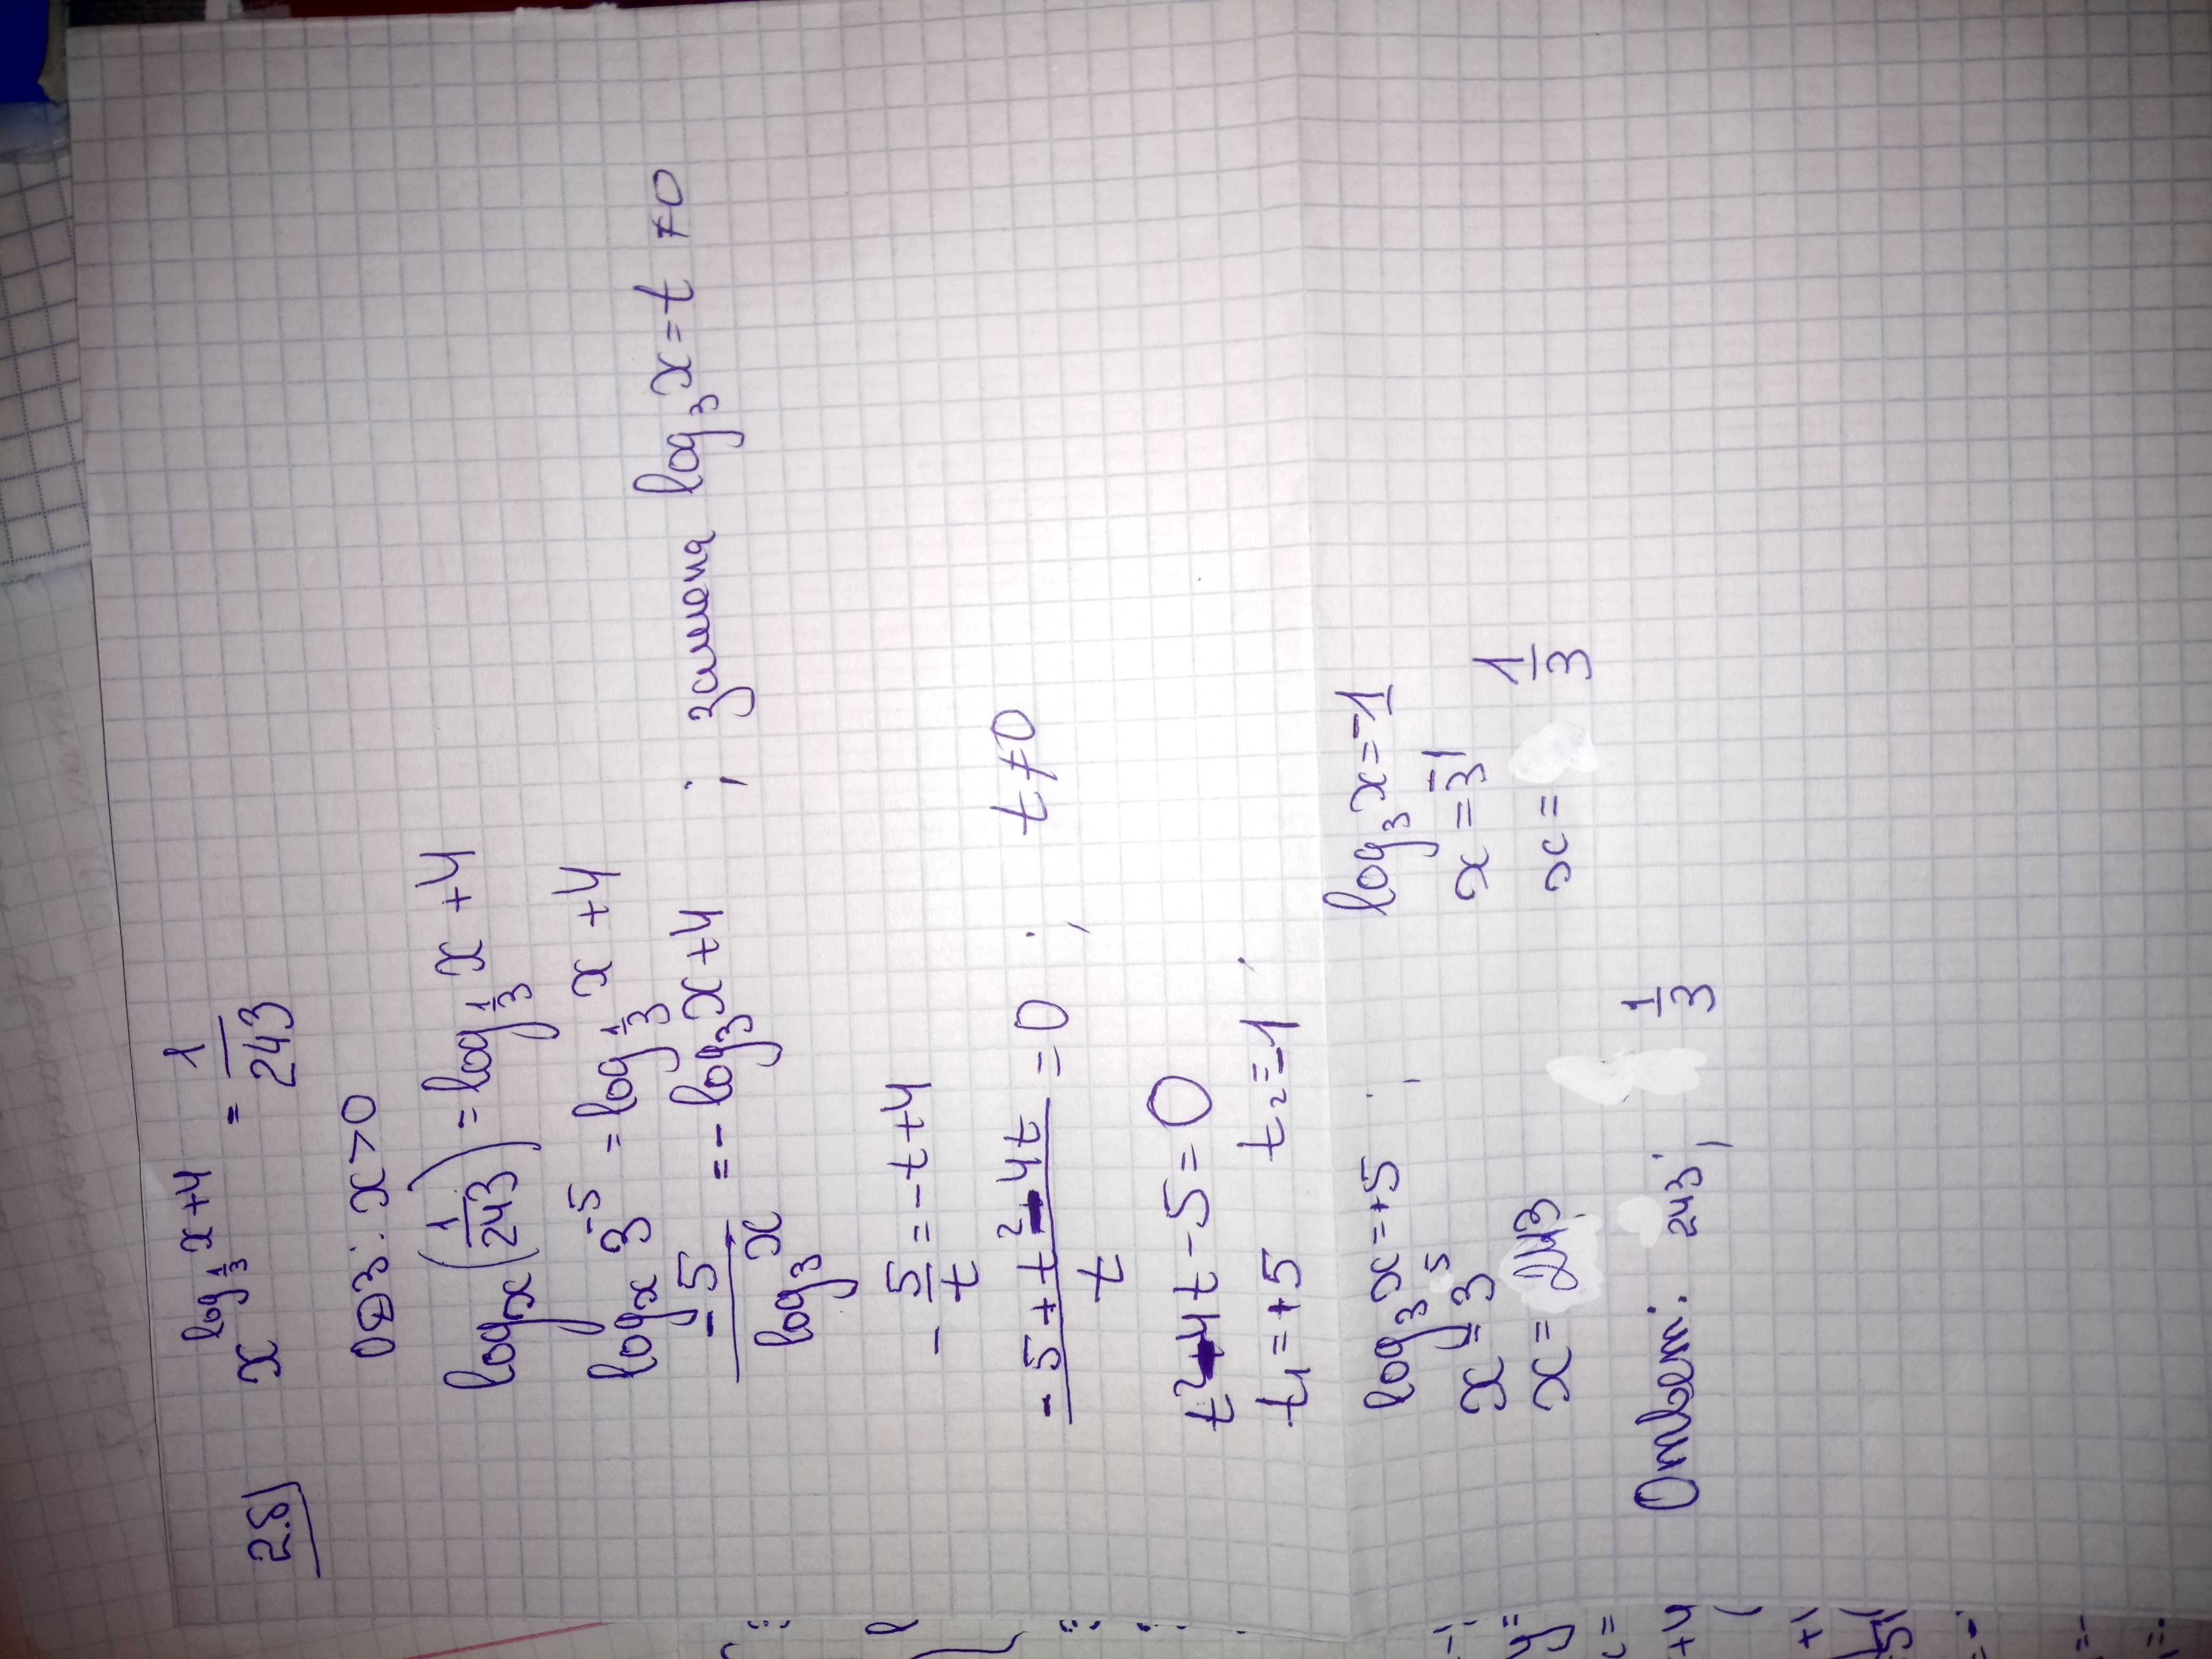 2.8) x^(log_(1/3) x+4) = 1/243
ОДЗ: x>0
log_x (1/243) = log_(1/3) x +4
log_x 3^(-5) = log_(1/3) x +4
-5/log_3 x = - log_3 x+4 ; замена log_3 x = t ≠0
- 5/t = -t+4
(-5+t²-4t)/t = 0 ; t≠0
t²-4t-5=0
t₁=+5 t₂=-1
log_3 x=+5 ; log_3 x=-1
x=3^5 x=3^(-1)
x=243 x= 1/3
Ответ: 243; 1/3